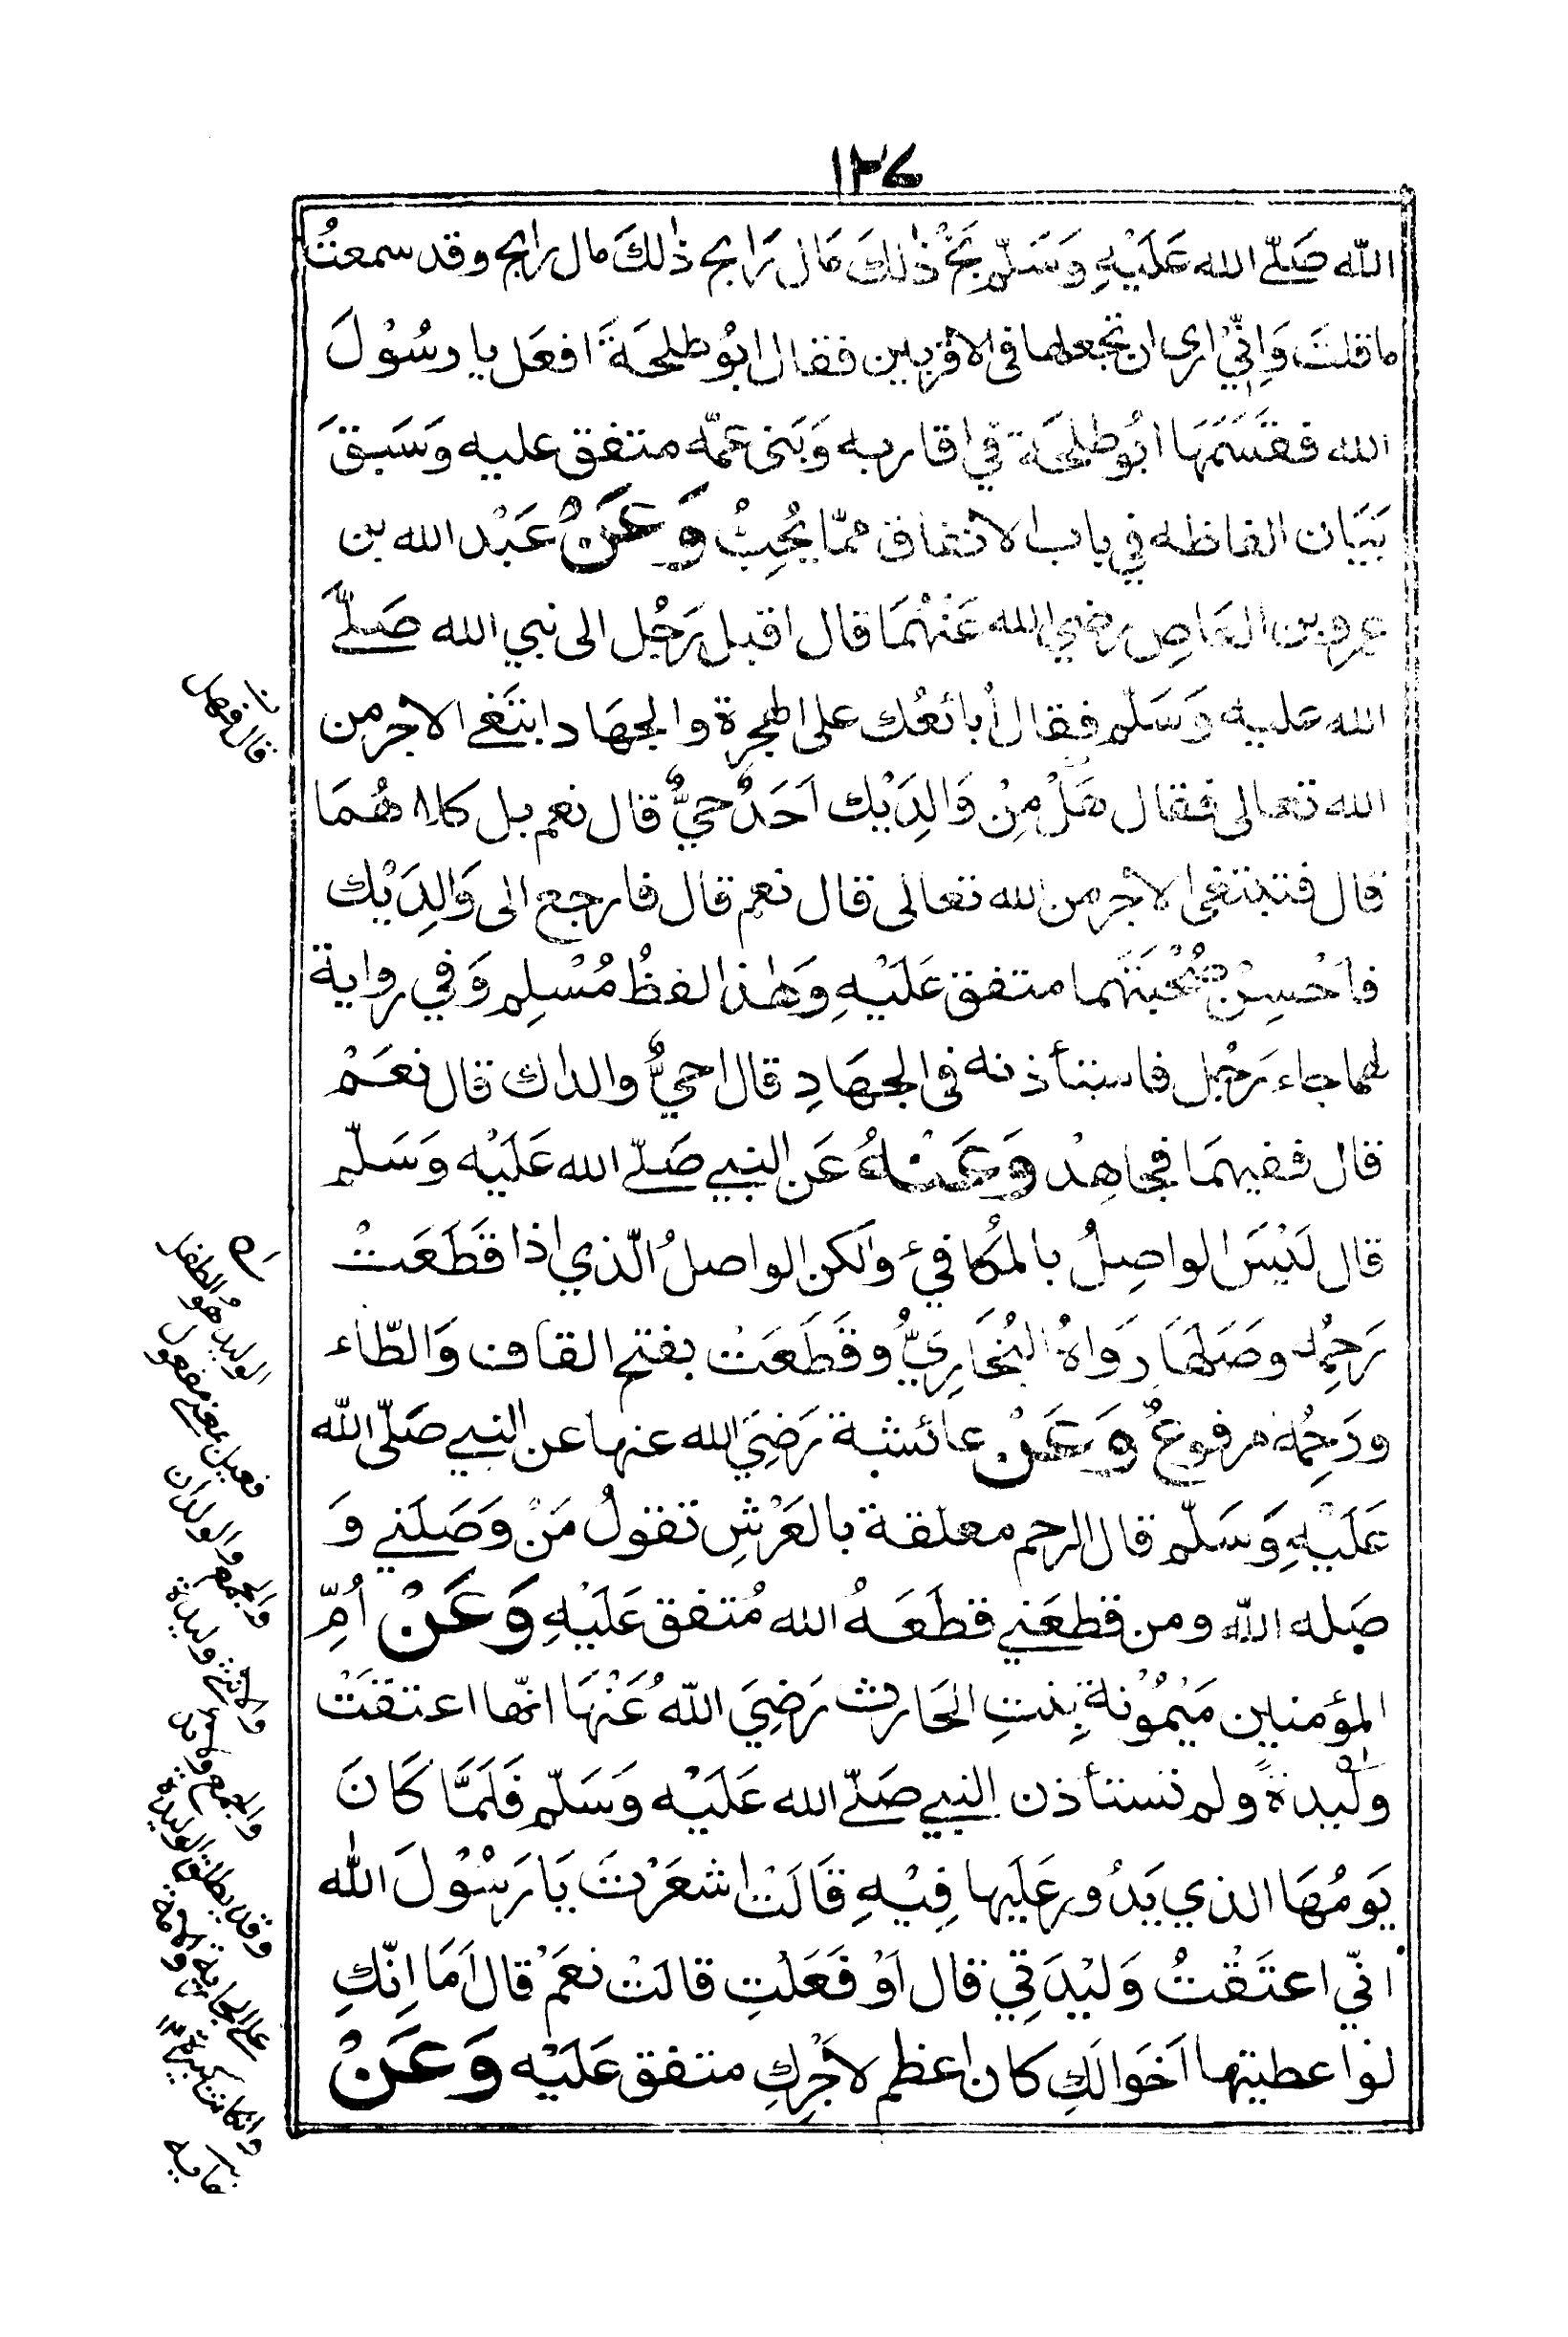 ١٢٦
الله صَلّے الله عَلَيْهِ وَسَلّم بَخْ ذٰلِكَ مَال رَابح ذٰلكَ مال رابح وقد سمعتُ
ما قلتَ وَاِنّيْ ارى ان تجعلها فى الاقربين فقال ابُو طلحَةَ افعَل يا رسُوْلَ
الله فقَسَمَهَا ابُو طلحَة في اقاربه وَبَنى عمّه متفق عليه وَسَبقَ
بَيَان الفاظه في باب الانفاق ممّا يُحِبُّ وَعَنْ عَبْد الله بن
عمرو بن العَاصِ رضي الله عَنْهُمَا قال اقبل رَجُل الى نبي الله صَلّے
الله عليه وَسَلّم فقال أبائعُك على الهجرة والجهَاد ابتَغے الاجر من
الله تعالى فقال هَلْ مِنْ وَالِدَيْك اَحَدٌ حيٌّ قال نعم بل كلاهُمَا
قال فتبتغى الاجر من الله تعالى قال نعم قال فارجع الى وَالِدَيْك
فاَحْسِنْ صُحْبَتَهما متفق عَلَيْهِ وَهٰذا لفظُ مُسْلِم وَفي رواية
لهما جاء رَجُل فاستأذنه فى الجهَادِ قال احيٌّ والداك قال نعَمْ
قال ففيهمَا فجاهِدْ وَعَنْهُ عَن النبيے صَلّے الله عَلَيْه وَسَلّم
قال لَيْسَ الواصِلُ بالمكافئ ولكن الواصلُ الّذي اذا قَطَعَتْ
رَحِمُه وصَلَهَا رَوَاهُ البُخَارِيُّ وقَطَعَتْ بفتح القاف وَالطّاء
ورَحِمُهُ مرفوعٌ وَعَنْ عائشة رَضِيَ الله عنها عن النبيے صَلّى الله
عَلَيْهِ وَسَلّم قال الرحم معلقة بالعَرْشِ تقولُ مَنْ وَصَلَنے وَ
صَله الله ومن قطعَنے قطَعَهُ الله مُتفق عَلَيْهِ وَعَنْ اُمِّ
المؤمنين مَيْمُوْنة بِنتِ الحَارث رَضِيَ اللهُ عَنْهَا انّها اعتقَتْ
وليدةً ولم تستأذن النبيے صَلّے الله عَلَيْه وَسَلّم فَلَمَّا كَانَ
يَومُهَا الذي يَدُور عَلَيها فِيْهِ قَالَتْ اشعَرْتَ يَا رَسُوْلَ الله
انّي اعتَقْتُ وَليْدَتِي قال اَوْ فَعَلْتِ قالَتْ نعَمْ قال اَمَا اِنّكِ
لو اعطيتها اَخوَالَكِ كان اعظم لاَجْرِكِ متفق عَلَيْه وَعَنْ
قال فهل
الوليد هو الطفل
فعيل بمعنے مفعول
والجمع والولدان
والانثے وليدة
والجمع ولائد
وقد يطلق الوليدة
على الجارية والامة
وان كانت كبيرة ١٢